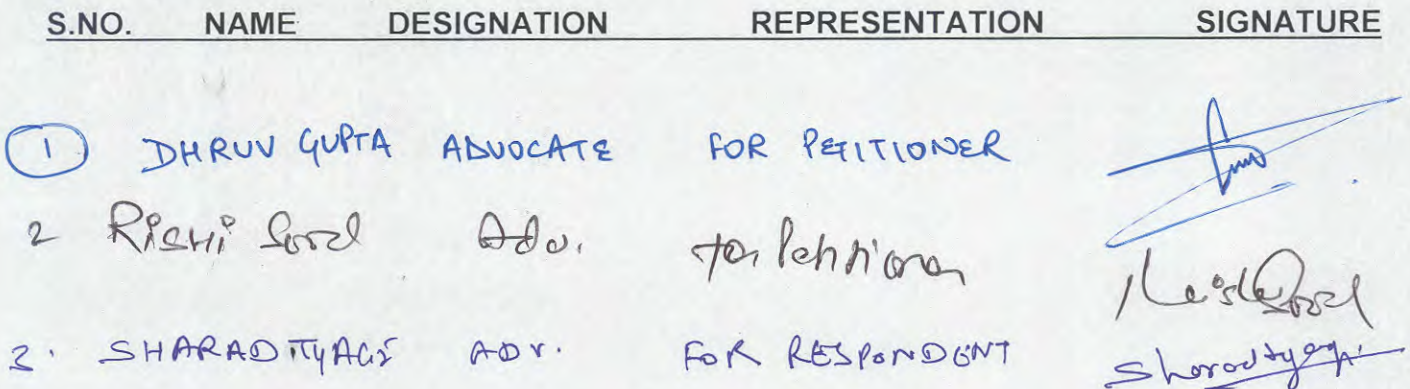 S.NO. NAME DESIGNATION REPRESENTATION SIGNATURE
1 DHRUV GUPTA ADVOCATE FOR PETITIONER
2 RISHI Sood Adv. for Petitioner Rishi Sood
3. SHARAD TYAGI ADV. FOR RESPONDENT Sharad tyagi